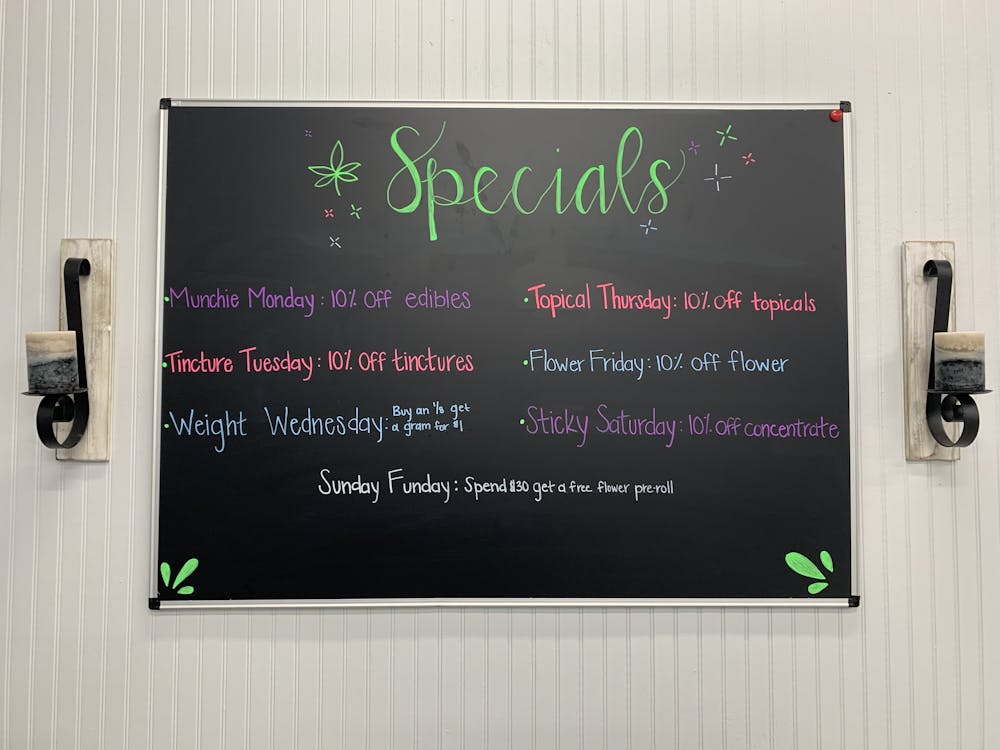 Specials
Munchie Monday: 10% off edibles
Tincture Tuesday: 10% off tinctures
Weight Wednesday: Buy an 1/8 get
a gram for $1
Topical Thursday: 10% off topicals
Flower Friday: 10% off flower
Sticky Saturday: 10% off concentrate
Sunday Funday: Spend $30 get a free flower pre-roll